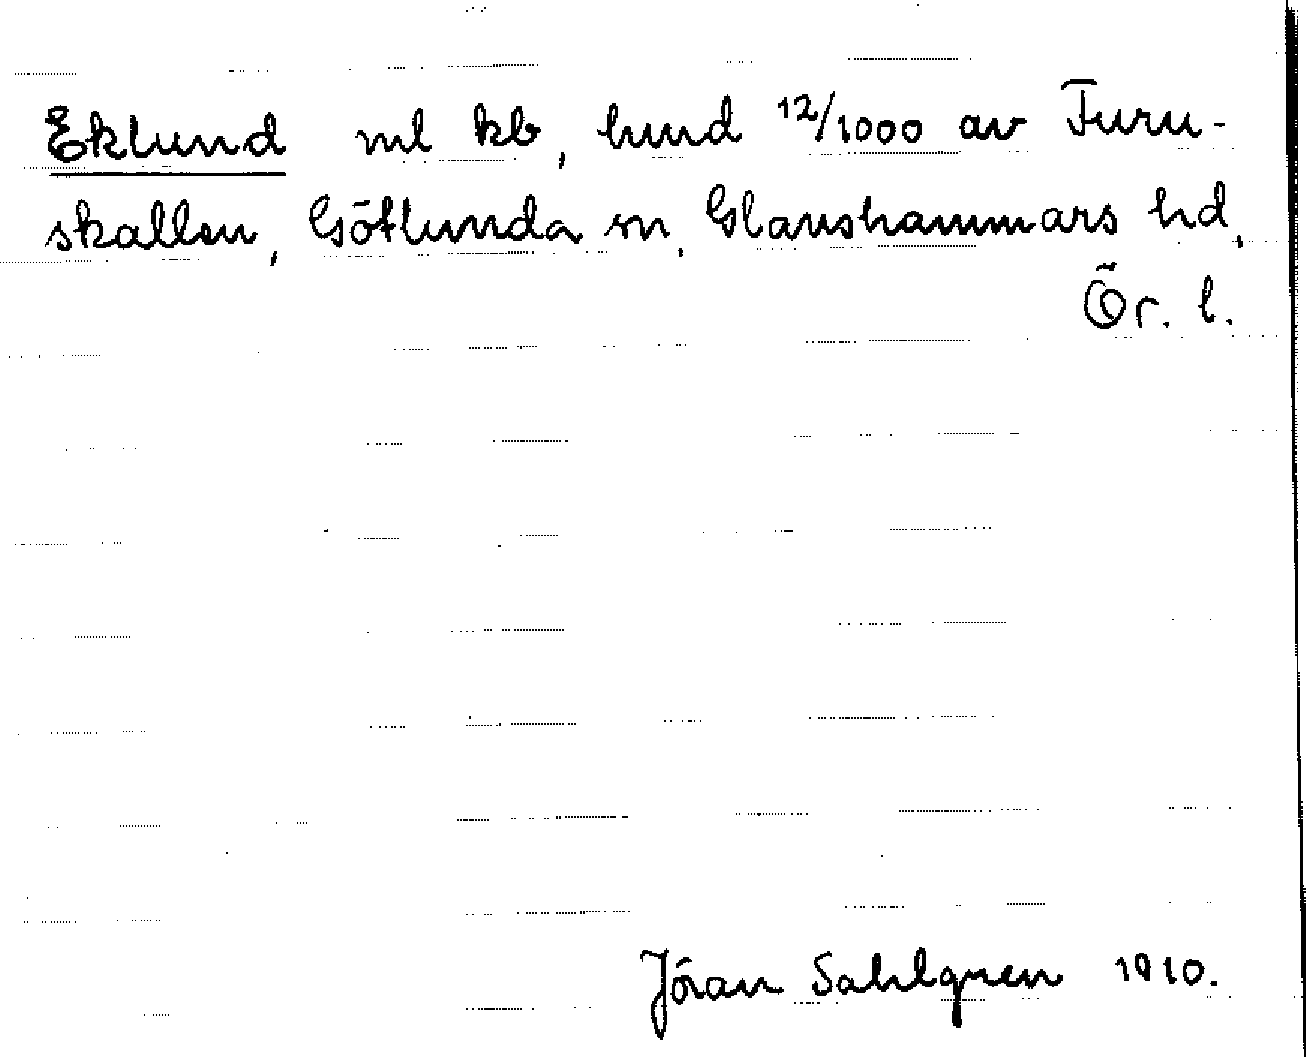 Eklund ml kb, lund 12/1000 av Furu-
skallen, Götlunda sn, Glanshammars hd,
Ör. l.
Jöran Sahlgren 1910.